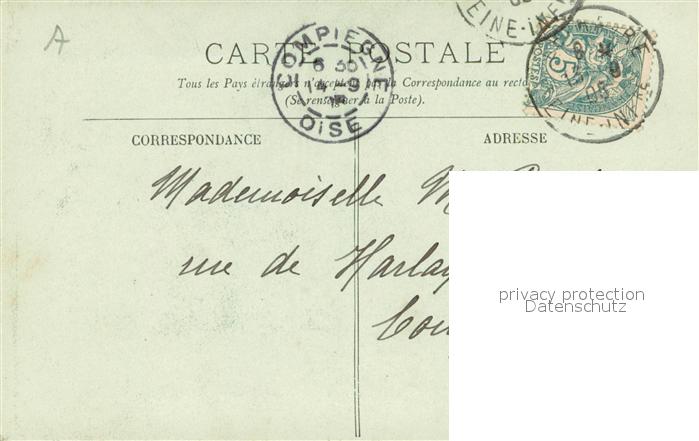 A
CARTE POSTALE
Tous les Pays étrangers n'acceptent pas la Correspondance au recto
(Se renseigner à la Poste).
COMPIEGNE
6 35
14-9
OISE
EINE-INF
5
CORRESPONDANCE
ADRESSE
Mademoiselle M
rue de Harlay
privacy protection
Datenschutz